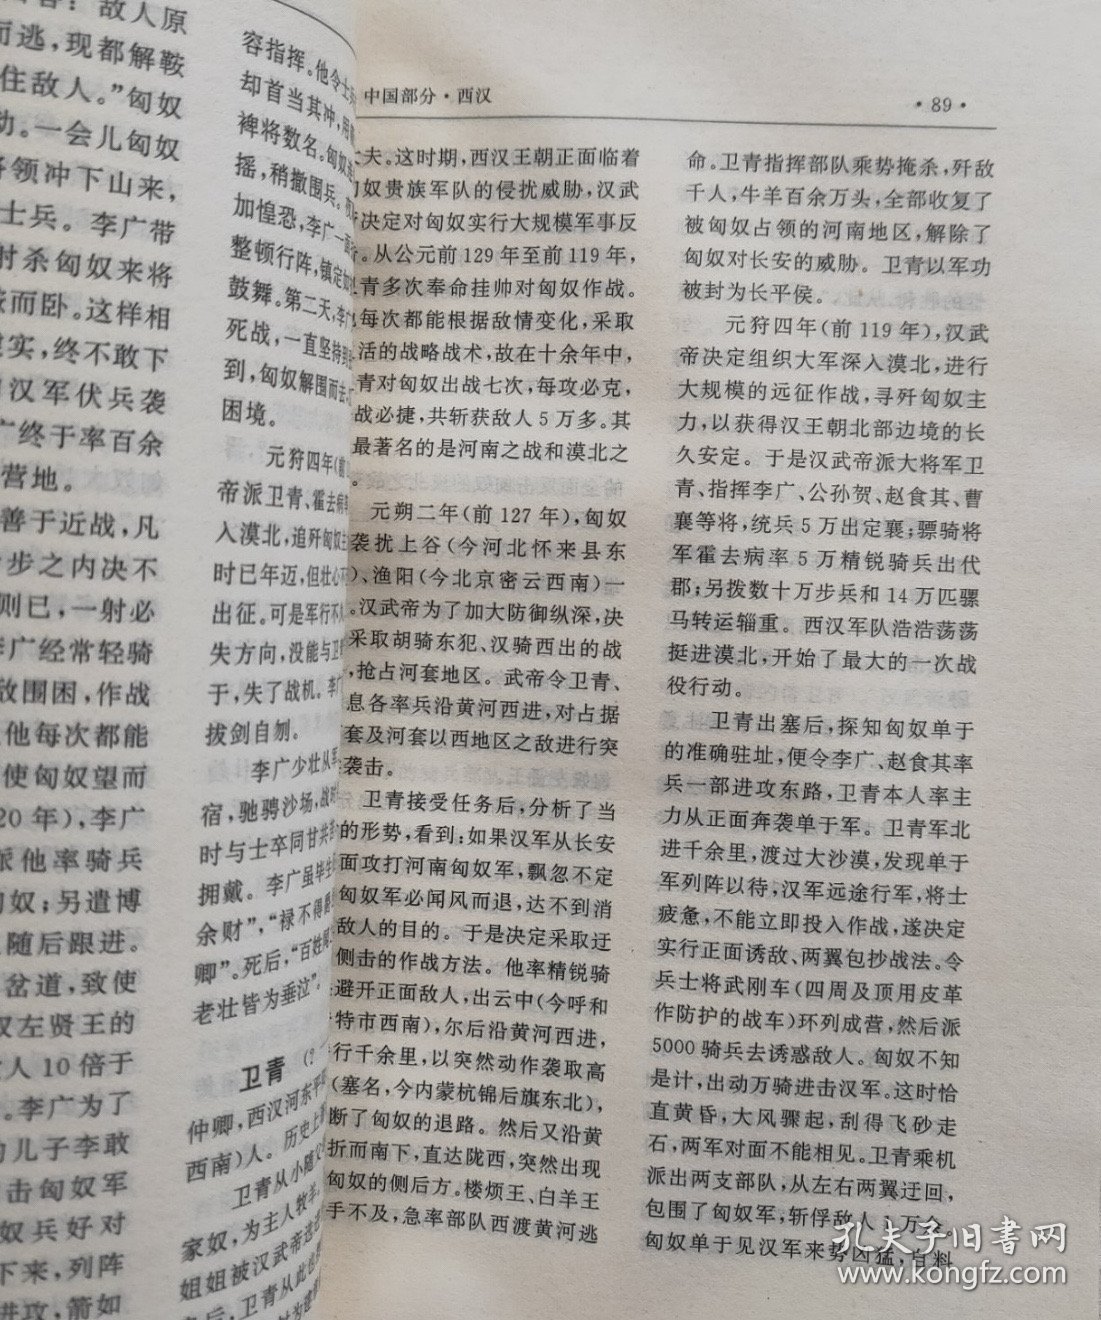 敌人原
而逃，现都解鞍
住敌人。”匈奴
动。一会儿匈奴
将领冲下山来，
士兵。李广带
射杀匈奴来将
而卧。这样相
虚实，终不敢下
汉军伏兵袭
广终于率百余
营地。
善于近战，凡
步之内决不
则已，一射必
李广经常轻骑
敌围困，作战
他每次都能
使匈奴望而
20年），李广
派他率骑兵
匈奴；另遣博
随后跟进。
岔道，致使
奴左贤王的
人10倍于
。李广为了
的儿子李敢
击匈奴军
奴兵好对
下来，列阵
进攻，箭如
容指挥。他令士
却首当其冲，用
裨将数名。匈奴
摇，稍撤围兵。
加惶恐，李广一
整顿行阵，镇定
鼓舞。第二天，李广
死战，一直坚持到
到，匈奴解围而去
困境。
元狩四年（前
帝派卫青、霍去病
入漠北，追歼匈奴主
时已年迈，但壮心
出征。可是军行不
失方向，没能与卫
于，失了战机。李广
拔剑自刎。
李广少壮从军
宿，驰骋沙场，战
时与士卒同甘共苦
拥戴。李广虽毕生
余财”，“禄不得
卿”。死后，“百姓
老壮皆为垂泣”。
卫青（？
仲卿，西汉河东平
西南）人。历史上
卫青从小随父
家奴，为主人牧羊
姐姐被汉武帝选进
后，卫青从此
中国部分·西汉
·89·
大夫。这时期，西汉王朝正面临着
匈奴贵族军队的侵扰威胁，汉武
帝决定对匈奴实行大规模军事反
。从公元前129年至前119年，
卫青多次奉命挂帅对匈奴作战。
他每次都能根据敌情变化，采取
灵活的战略战术，故在十余年中，
卫青对匈奴出战七次，每攻必克，
战必捷，共斩获敌人5万多。其
最著名的是河南之战和漠北之
。
元朔二年（前127年），匈奴
袭扰上谷（今河北怀来县东
）、渔阳（今北京密云西南）一
。汉武帝为了加大防御纵深，决
采取胡骑东犯、汉骑西出的战
，抢占河套地区。武帝令卫青、
息各率兵沿黄河西进，对占据
套及河套以西地区之敌进行突
袭击。
卫青接受任务后，分析了当
的形势，看到：如果汉军从长安
面攻打河南匈奴军，飘忽不定
匈奴军必闻风而退，达不到消
敌人的目的。于是决定采取迂
侧击的作战方法。他率精锐骑
避开正面敌人，出云中（今呼和
特市西南），尔后沿黄河西进，
行千余里，以突然动作袭取高
（塞名，今内蒙杭锦后旗东北），
断了匈奴的退路。然后又沿黄
折而南下，直达陇西，突然出现
匈奴的侧后方。楼烦王、白羊王
手不及，急率部队西渡黄河逃
命。卫青指挥部队乘势掩杀，歼敌
千人，牛羊百余万头，全部收复了
被匈奴占领的河南地区，解除了
匈奴对长安的威胁。卫青以军功
被封为长平侯。
元狩四年（前119年），汉武
帝决定组织大军深入漠北，进行
大规模的远征作战，寻歼匈奴主
力，以获得汉王朝北部边境的长
久安定。于是汉武帝派大将军卫
青、指挥李广、公孙贺、赵食其、曹
襄等将，统兵5万出定襄；骠骑将
军霍去病率5万精锐骑兵出代
郡；另拨数十万步兵和14万匹骡
马转运辎重。西汉军队浩浩荡荡
挺进漠北，开始了最大的一次战
役行动。
卫青出塞后，探知匈奴单于
的准确驻址，便令李广、赵食其率
兵一部进攻东路，卫青本人率主
力从正面奔袭单于军。卫青军北
进千余里，渡过大沙漠，发现单于
军列阵以待，汉军远途行军，将士
疲惫，不能立即投入作战，遂决定
实行正面诱敌、两翼包抄战法。令
兵士将武刚车（四周及顶用皮革
作防护的战车）环列成营，然后派
5000骑兵去诱惑敌人。匈奴不知
是计，出动万骑进击汉军。这时恰
直黄昏，大风骤起，刮得飞砂走
石，两军对面不能相见。卫青乘机
派出两支部队，从左右两翼迂回，
包围了匈奴军，斩俘敌人1万余。
匈奴单于见汉军来势凶猛，自料
孔夫子旧书网
www.kongfz.com